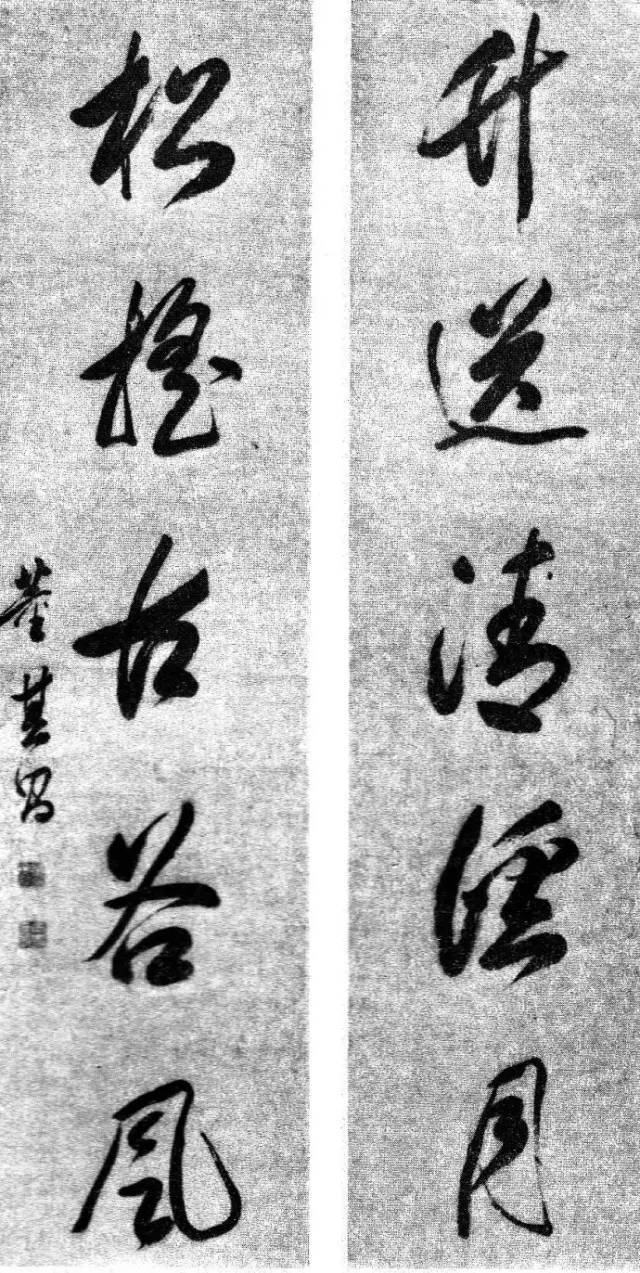 竹送清溪月
松搖古谷風
董其昌